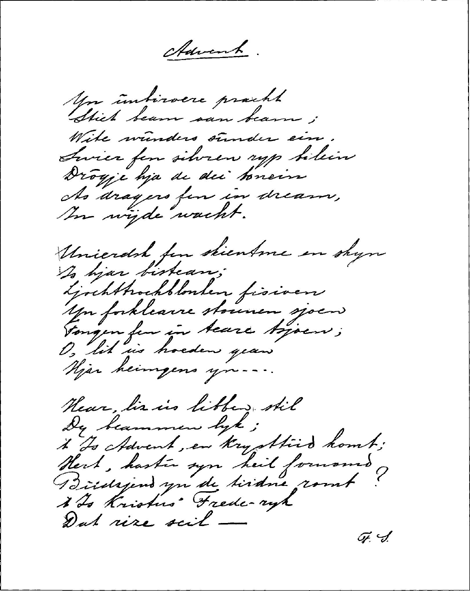 Advent.
Yn ûnbiroere pracht
Stiet beam oan beam;
Wite wûnders sûnder ein.
Swier fen silvren ryp
Drôgje hja de dei
As dragers fen in dream,
In wijde wacht.
Unierdsk fen skientme en skyn
Is hjar bistean;
fisioen
Yn forklearre stounen sjoen
Fongen fen in teare tsjoen;
O, lit ús hoeden gean
Hjar heimgens yn----
Hear, liz ús libben stil
Dy beammen lyk;
't Is Advent, en Krysttiid komt;
Hert, hastû syn heil fornomd
yn de romt?
't Is Kristus' Frede-ryk
Dat rize scil —
F. S.